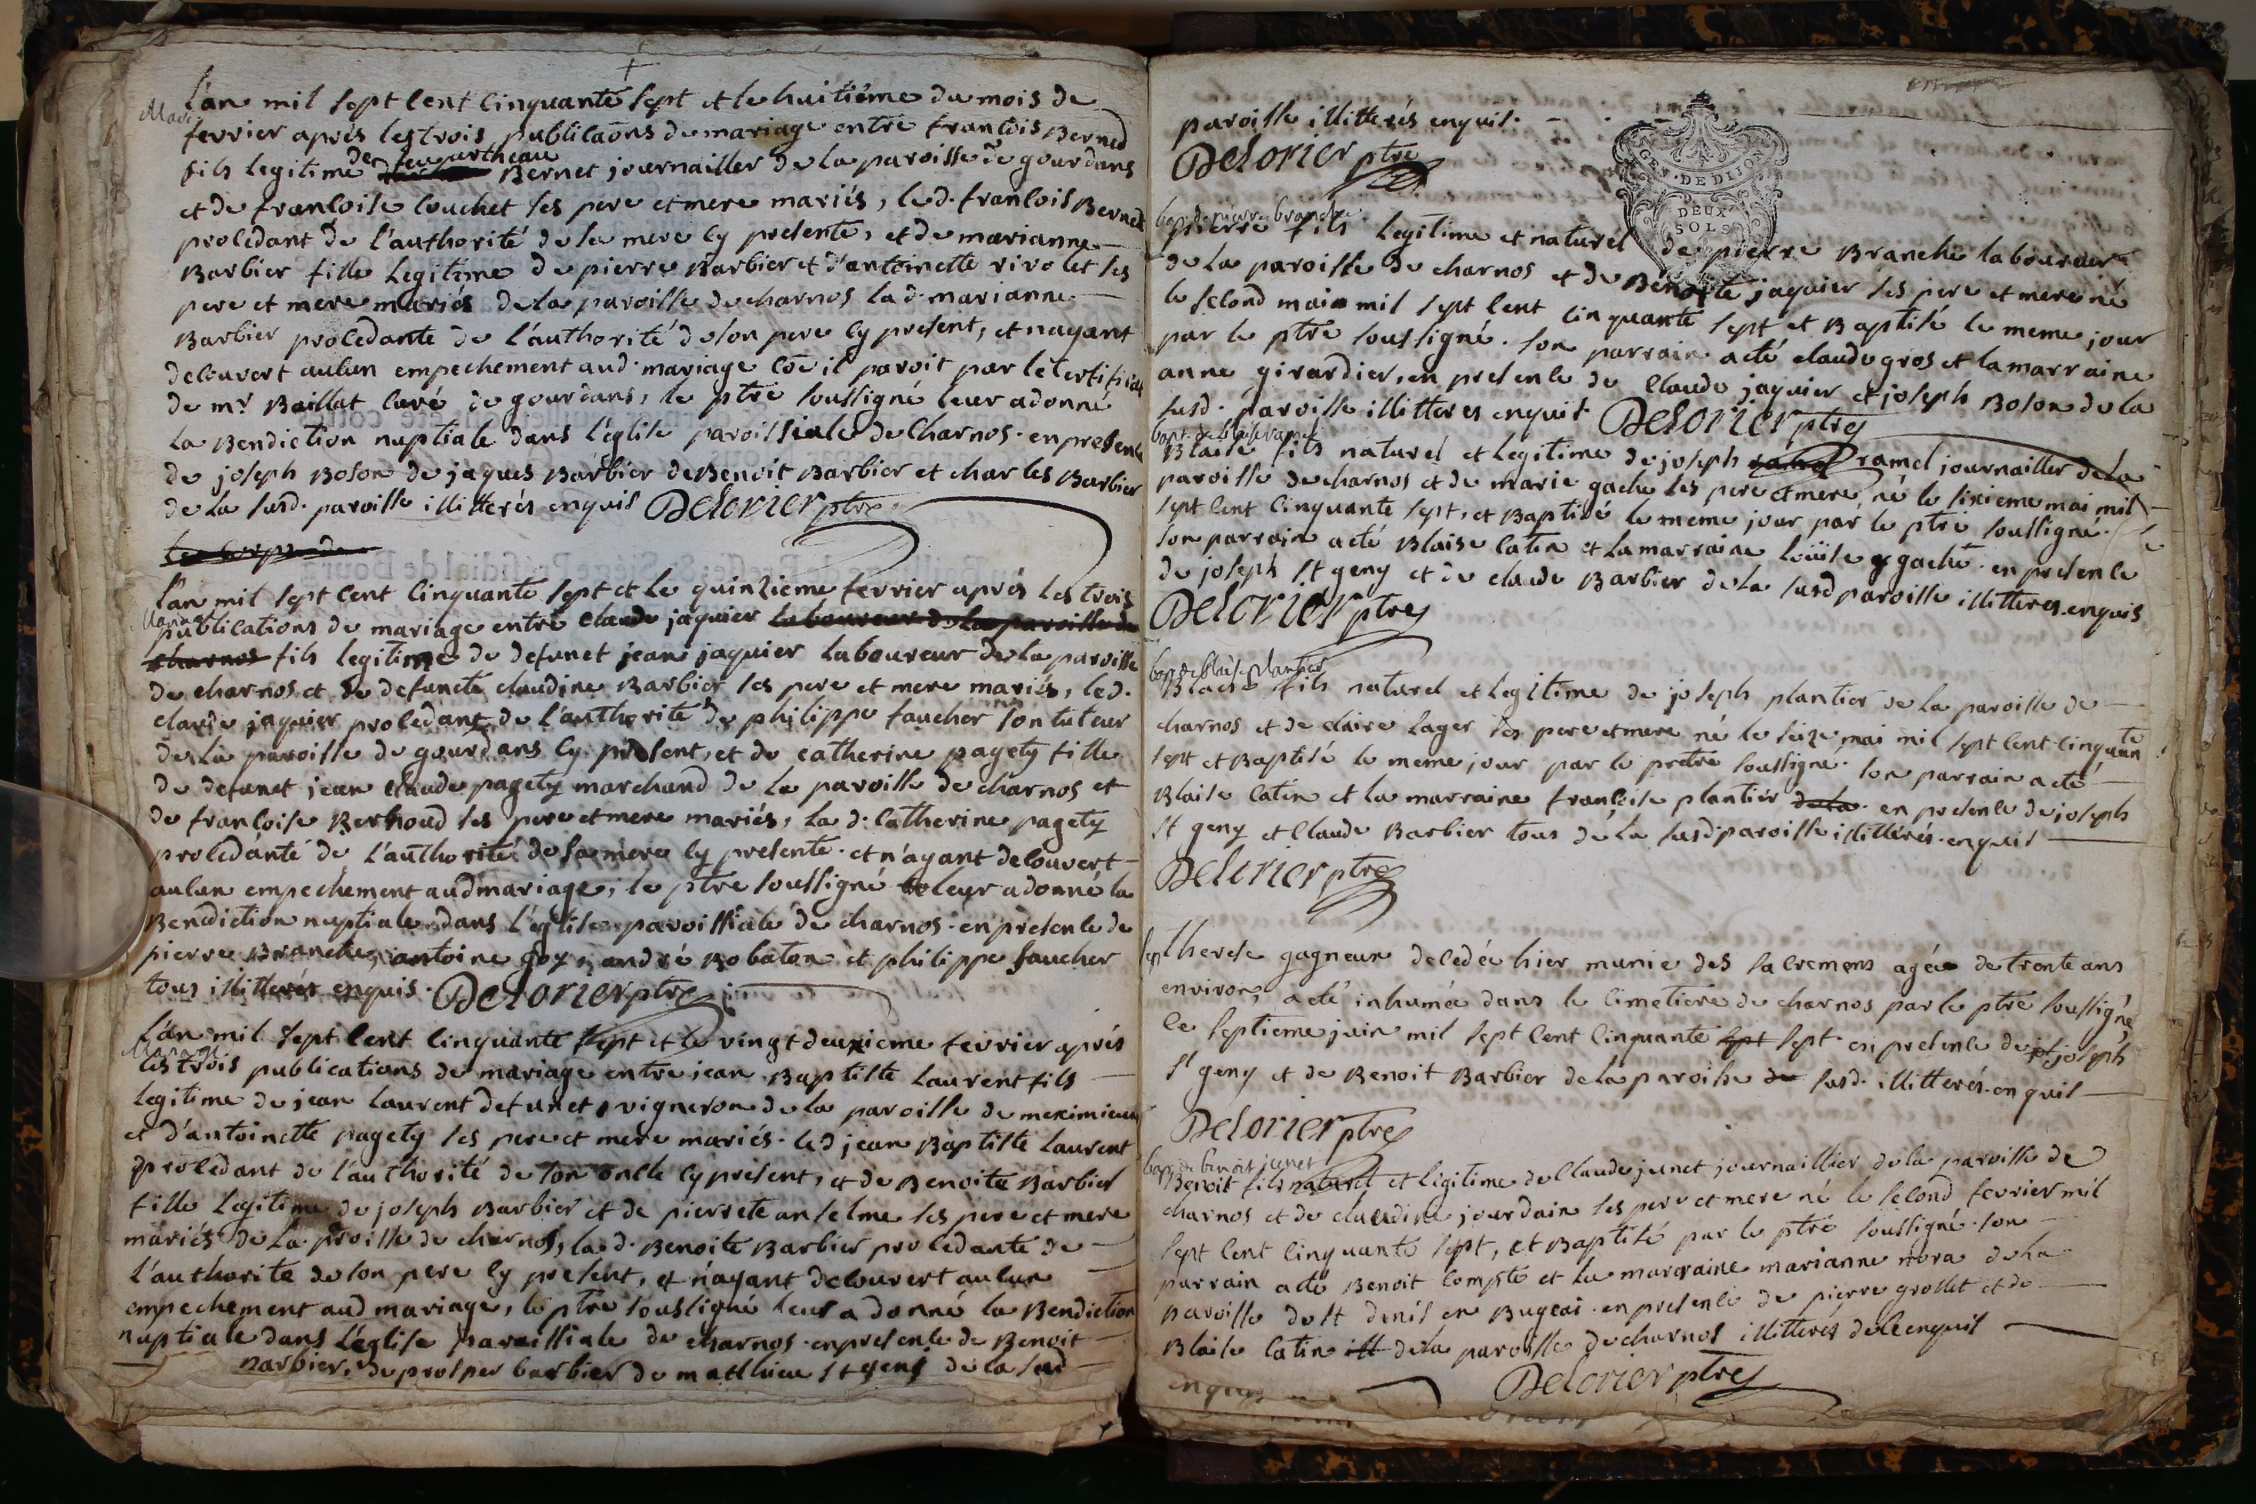 L'an mil sept cent cinquante sept et le huitième du mois de
Mari
fevrier aprés les trois publicaõns de mariage entre francois Berned
fils legitime de feu Bernet journailler de la paroisse de gourdans
et de francoise couchet ses pere et mere mariés, led. francois Bernet
procedant de l'authorité de sa mere cy presente, et de marianne
Barbier fille legitime de pierre Barbier et d'antoinette rivolet ses
pere et mere mariés de la paroisse de charnos lad. marianne
Barbier procedante de l'authorité de son pere cy present, et nayant
decouvert aucun empechement aud. mariage cõe il paroit par le certificat
de mr. Baillat curé de gourdans, le ptre soussigné leur a donné
la Bendiction nuptiale dans l'église paroissiale de Charnos. en presence
de joseph Boson de jaques Barbier de Benoit Barbier et charles Barbier
de la susd. paroisse illitterés enquis Delorier ptre
L'an mil sept cent cinquante sept et le quinzieme fevrier aprés les trois
Mariage
publications de mariage entre claude jaquier laboureur de la paroisse de
charnos fils legitime de defunct jean jaquier laboureur de la paroisse
de charnos et de defuncte claudine Barbier ses pere et mere mariés, led.
claude jaquier procedant de l'authorité de philippe faucher son tuteur
de la paroisse de gourdans cy present, et de catherine pagety fille
de defunct jean claude pagety marchand de la paroisse de charnos et
de francoise Berhoud ses pere et mere mariés, la d. catherine pagety
procedante de l'authorité de sa mere cy presente. et n'ayant decouvert
aucun empechement aud mariage, le ptre soussigné leur a donné la
Bendiction nuptiale dans l'eglise paroissiale de charnos. en presence de
pierre Branche, antoine goy, andré Robaton et philippe faucher
tous illitterés enquis. Delorier ptre
L'an mil sept cent cinquante sept et le vingt deuxieme fevrier aprés
Mariage
les trois publications de mariage entre jean Baptiste Laurent fils
legitime de jean Laurent defunct, vigneron de la paroisse de meximieux
et d'antoinette pagety ses pere et mere mariés. led jean Baptiste Laurent
procedant de l'authorité de son oncle cy present, et de Benoite Barbier
fille legitime de joseph Barbier et de pierrete anselme ses pere et mere
mariés de la proisse de charnos, la d. Benoite Barbier procedante de
l'authorite de son pere cy present, et n'ayant decouvert aucun
empechement aud mariage, le ptre soussigné leur a donné la Bendiction
nuptiale dans l'église paroissiale de charnos. en presence de Benoit
barbier, de prosper barbier de mathieu st geni de la susd
paroisse illitterés enquis.
Delorier ptre
GEN. DE DIJON
DEUX
SOLS
bap. de pierre branche
pierre fils legitime et naturel de pierre Branche laboureur
de la paroisse de charnos et de Benoite jaquier ses pere et mere né
le second mai mil sept cent cinquante sept et Baptisé le meme jour
par le ptre soussigné. son parrain a eté claude gros et la marraine
anne girardier, en presence de Claude jaquier et joseph Boson de la
susd. paroisse illitteres enquis. Delorier ptre
bapt. de blaise ramel
Blaise fils naturel et legitime de joseph ramel journailler de la
paroisse de charnos et de marie gache ses pere et mere, né le sixieme mai mil
sept cent cinquante sept, et Baptisé le meme jour par le ptre soussigné.
son parrain a eté Blaise catin et la marraine loüise gache. en presence
de joseph st geny et de claude Barbier de la susd paroisse illitteres. enquis
Delorier ptre
bap. de blaise plantier
Blaise fils naturel et legitime de joseph plantier de la paroisse de
charnos et de claire lager ses pere et mere né le seize mai mil sept cent cinquante
sept et Baptisé le meme jour par le pretre soussigné. son parrain a eté
Blaise catin et la marraine francoise plantier de la. en presence de joseph
st geny et Claude Barbier tous de la susd. paroisse illitterés. enquis
Delorier ptre
therese gagneur decedée hier munie des sacremens agée de trente ans
environ, a eté inhumée dans le cimetiere de charnos par le ptre soussigné
le septieme juin mil sept cent cinquante sept sept. en presence de joseph
st geny et de Benoit Barbier de la paroisse de susd. illitterés. enquis
Delorier ptre
bap. de benoit junet
Benoit fils naturel et legitime de Claude junet journaillier de la paroisse de
charnos et de claudine jourdain ses pere et mere né le second fevrier mil
sept cent cinquante sept, et Baptisé par le ptre soussigné. son
parrain a eté Benoit Compte et la marraine marianne mora de la
paroisse de st denis en Bugeai. en presence de pierre grollet et de
Blaise catin ill de la paroisse de charnos illitterés de ce enquis
Delorier ptre